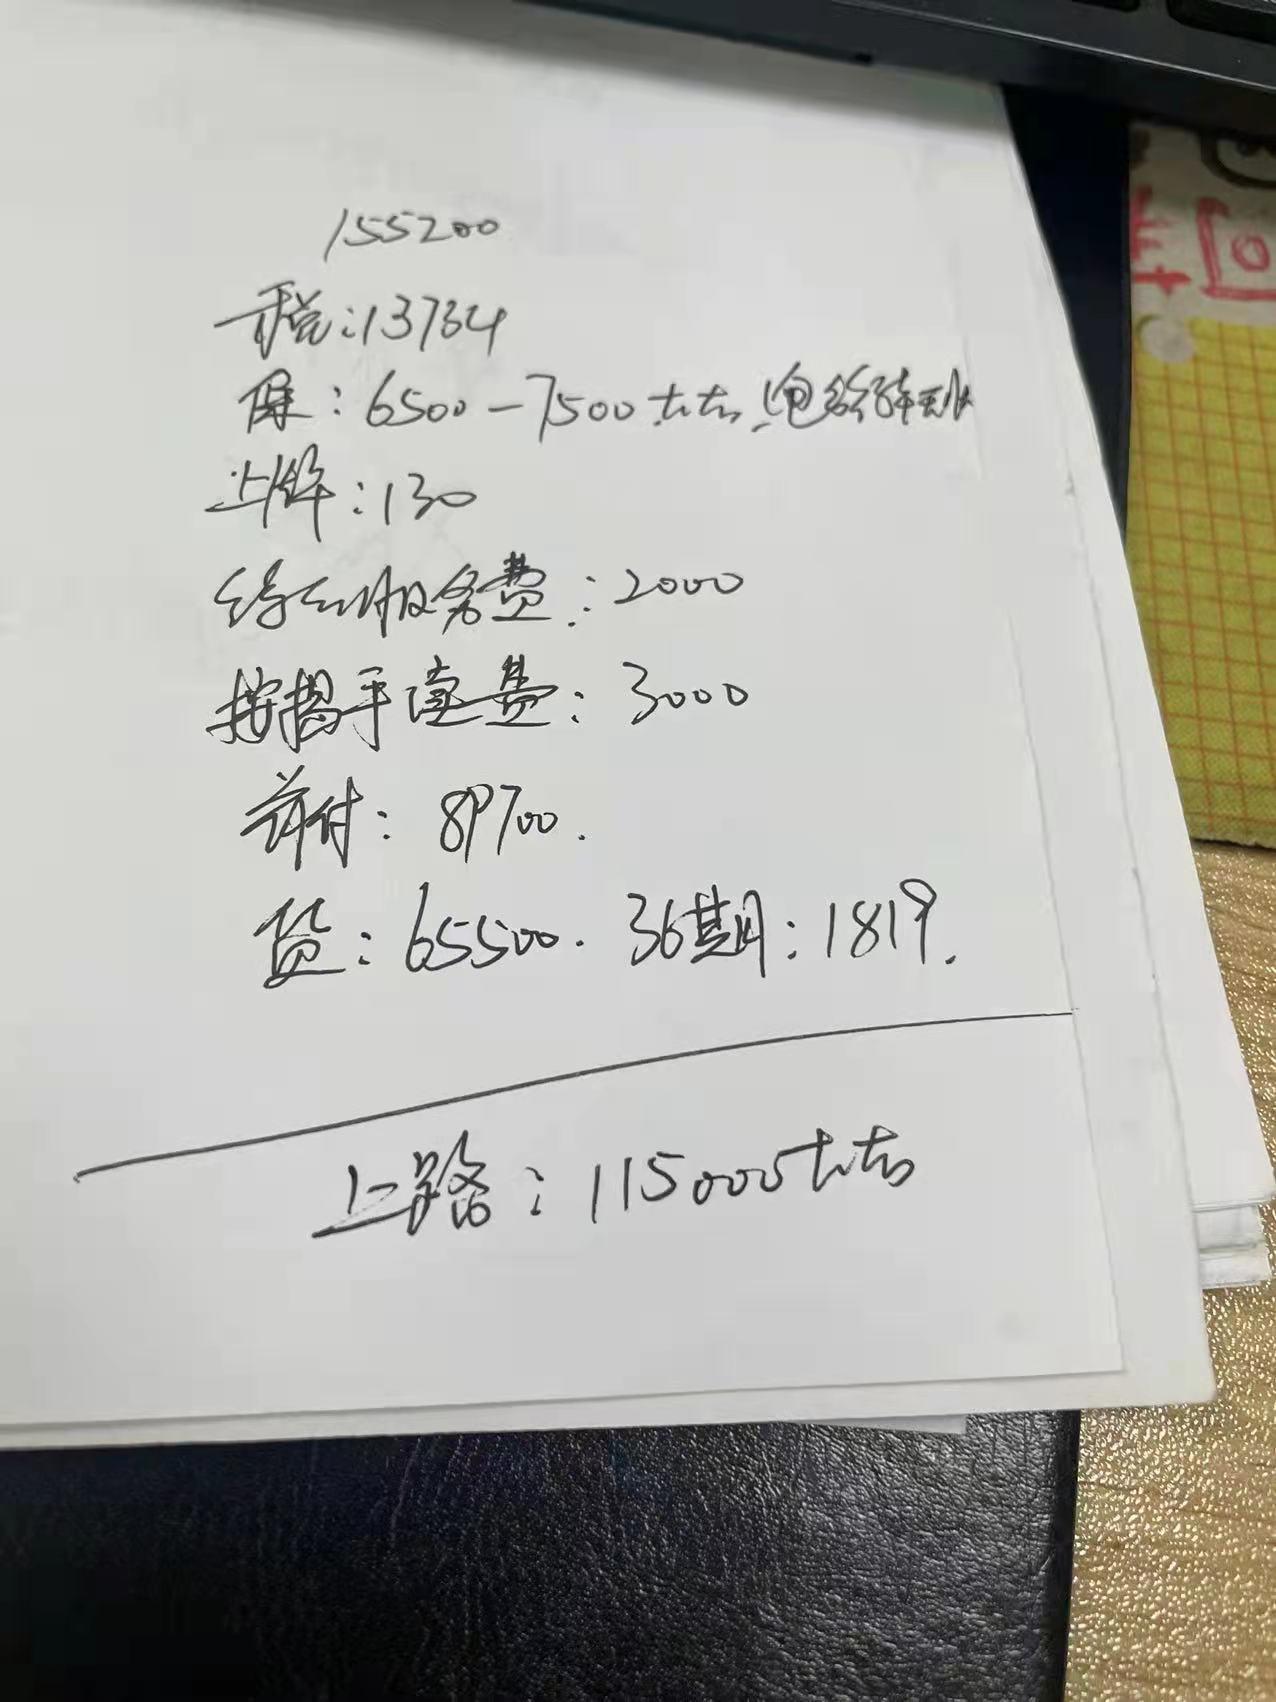 155200
税:13734
保:6500-7500左右,包含
上牌:130
综合服务费:2000
按揭手续费:3000
首付:89700.
贷:65500. 36期:1819.
上路:115000左右